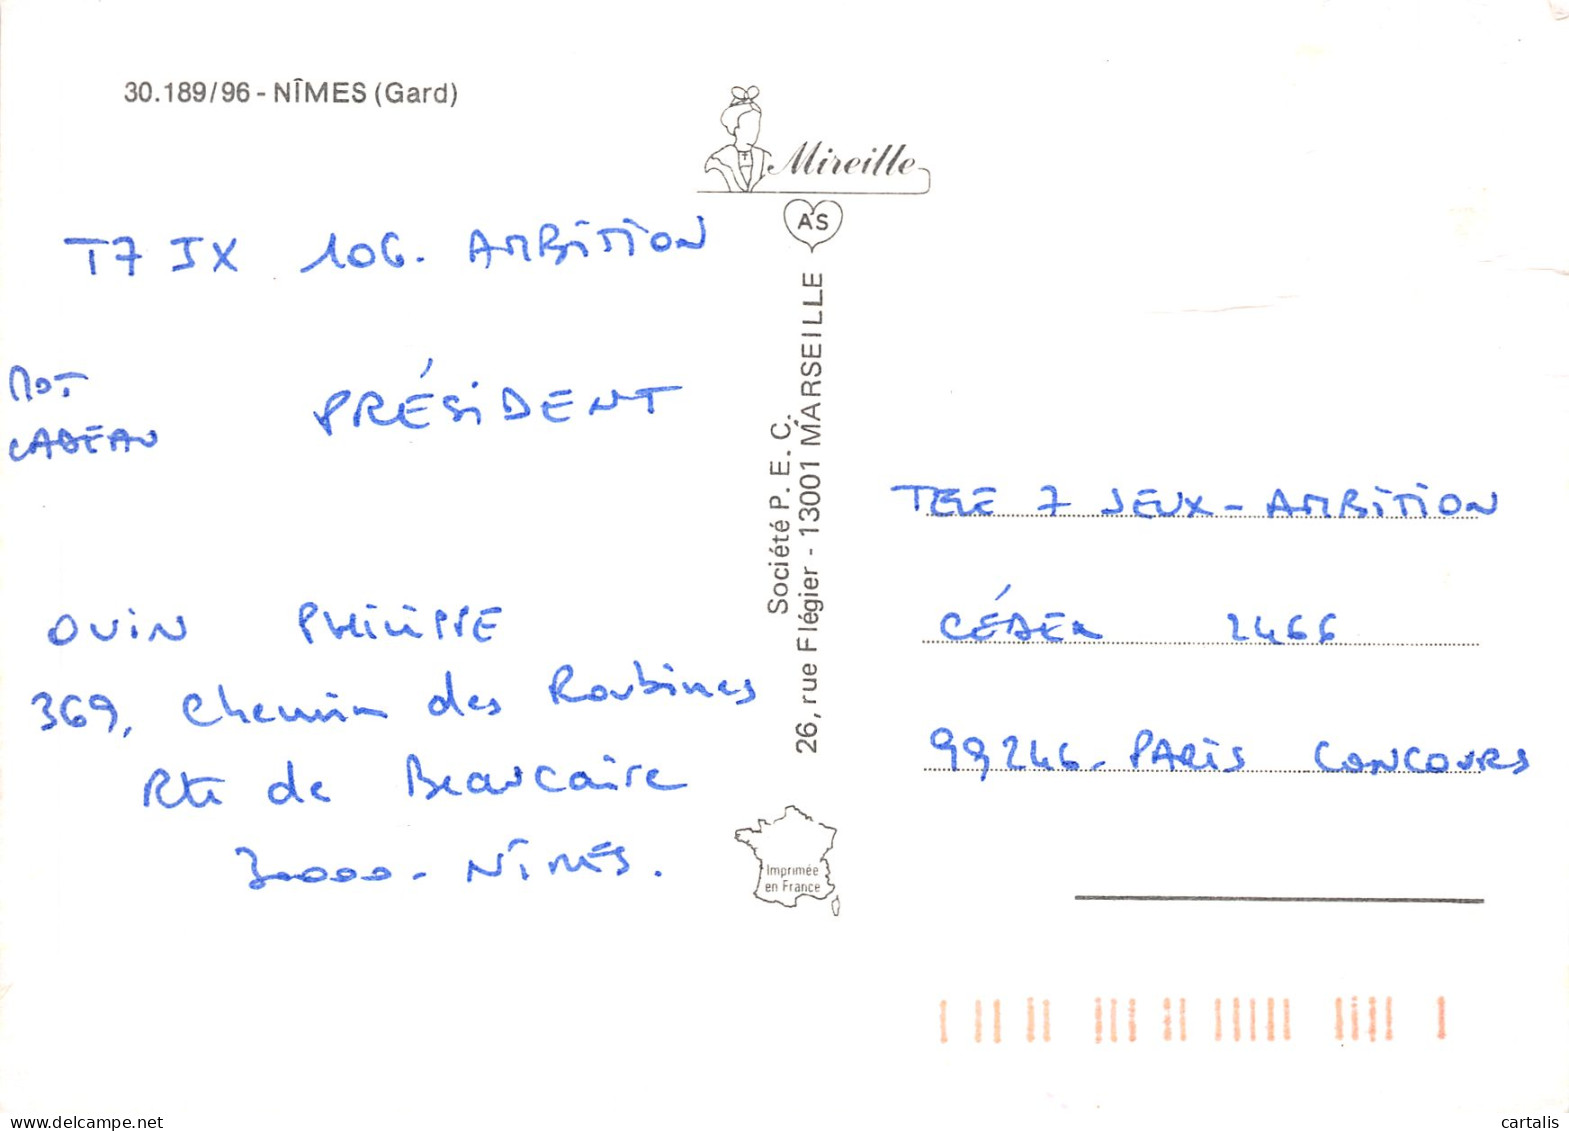 30.189/96 - NÎMES (Gard)
Mireille
AS
T7 JX 106. AMBITION
MOT
CADEAU
PRÉSIDENT
OUIN PHILIPPE
369, Chemin des Roubines
Rte de Beaucaire
30000 - NÎMES.
Société P. E. C.
26, rue Flégier - 13001 MARSEILLE
Imprimée
en France
TELE 7 JEUX - AMBITION
CÉDEX 2466
99246 - PARIS CONCOURS
delcampe.net
cartalis